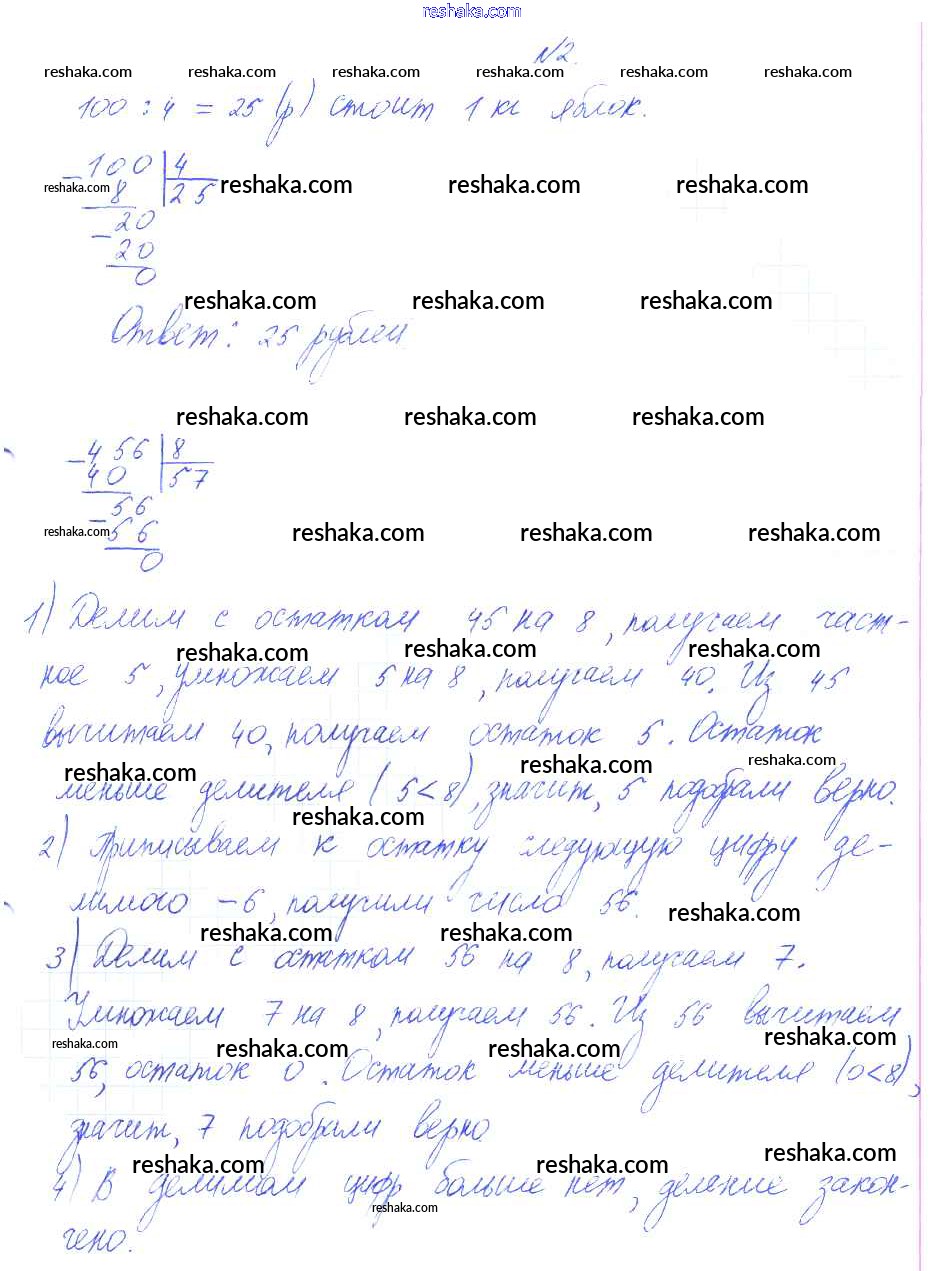 reshaka.com
№2.
reshaka.com reshaka.com reshaka.com reshaka.com reshaka.com reshaka.com
100 : 4 = 25 (р) стоит 1 кг яблок.
- 100 | 4
reshaka.com 8 | 25 reshaka.com reshaka.com reshaka.com
20
- 20
0
reshaka.com reshaka.com reshaka.com
Ответ: 25 рублей.
reshaka.com reshaka.com reshaka.com
- 456 | 8
40 | 57
- 56
reshaka.com 56 reshaka.com reshaka.com reshaka.com
0
1) Делим с остатком 45 на 8, получаем част-
reshaka.com reshaka.com reshaka.com
ное 5, умножаем 5 на 8, получаем 40. Из 45
вычитаем 40, получаем остаток 5. Остаток
reshaka.com reshaka.com reshaka.com
меньше делителя (5<8), значит, 5 подобрали верно.
reshaka.com
2) Приписываем к остатку следующую цифру де-
лимого - 6, получили число 56.
reshaka.com reshaka.com reshaka.com
3) Делим с остатком 56 на 8, получаем 7.
Умножаем 7 на 8, получаем 56. Из 56 вычитаем
reshaka.com reshaka.com reshaka.com reshaka.com
56, остаток 0. Остаток меньше делителя (0<8),
значит, 7 подобрали верно
reshaka.com reshaka.com reshaka.com
4) В делимом цифр больше нет, деление закон-
reshaka.com
чено.